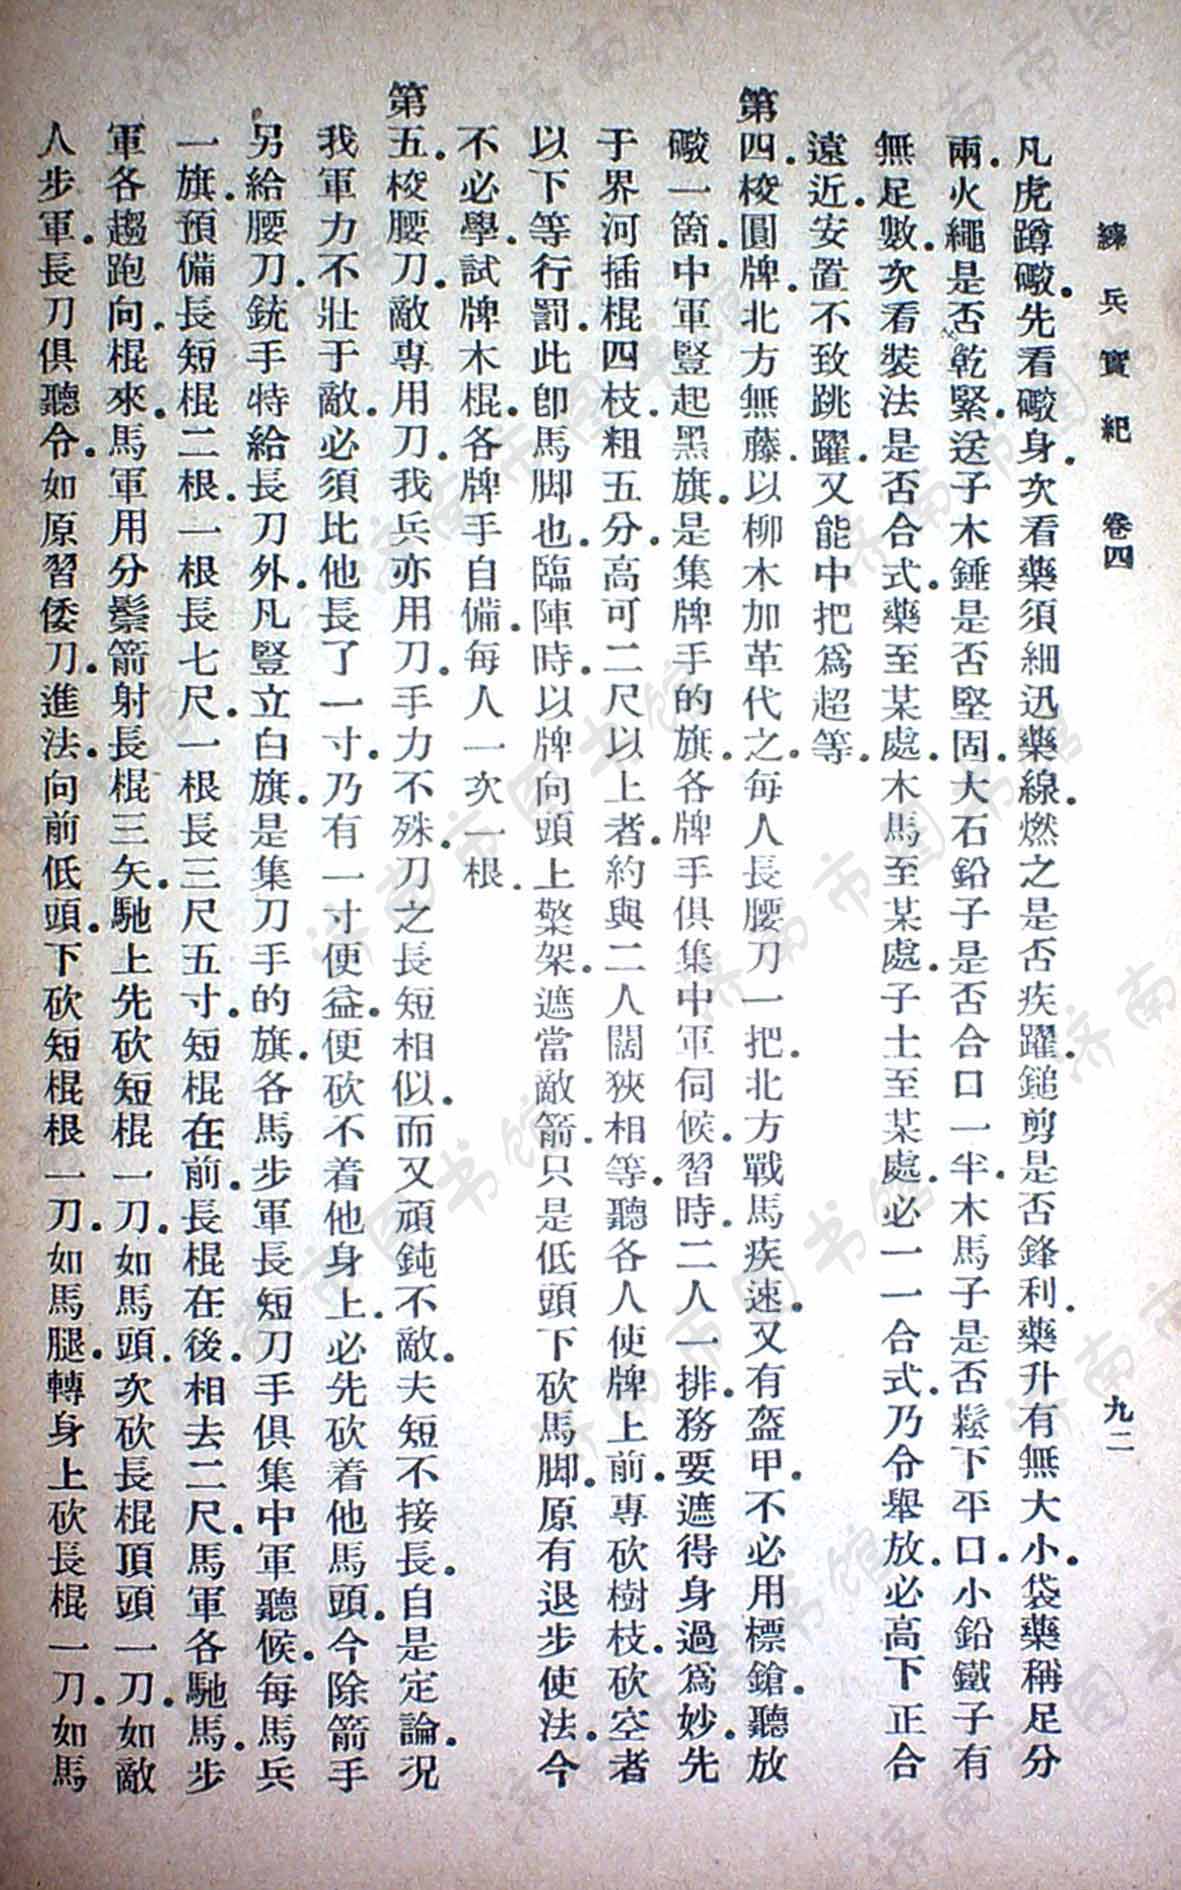 練兵實紀 卷四 九二
凡虎蹲礮。先看礮身。次看藥須細迅藥線。燃之是否疾躍。鎚剪是否鋒利。藥升有無大小。袋藥稱足分
兩。火繩是否乾緊。送子木錘是否堅固。大石鉛子是否合口一半。木馬子是否鬆下平口。小鉛鐵子有
無足數。次看裝法是否合式。藥至某處。木馬至某處。子土至某處。必一一合式。乃令舉放。必高下正合
遠近。安置不致跳躍。又能中把爲超等。
第四。校圓牌。北方無藤。以柳木加革代之。每人長腰刀一把。北方戰馬疾速。又有盔甲。不必用標鎗。聽放
礮一箇。中軍豎起黑旗。是集牌手的旗。各牌手俱集中軍伺候。習時。二人一排。務要遮得身過爲妙。先
于界河插棍四枝。粗五分。高可二尺以上者。約與二人闊狹相等。聽各人使牌上前。專砍樹枝。砍空者
以下等行罰。此卽馬脚也。臨陣時。以牌向頭上檠架。遮當敵箭。只是低頭下砍馬脚。原有退步使法。今
不必學。試牌木棍。各牌手自備。每人一次一根。
第五。校腰刀。敵專用刀。我兵亦用刀。手力不殊。刀之長短相似。而又頑鈍不敵。夫短不接長。自是定論。況
我軍力不壯于敵。必須比他長了一寸。乃有一寸便益。便砍不着他身上。必先砍着他馬頭。今除箭手
另給腰刀。銃手特給長刀外。凡豎立白旗。是集刀手的旗。各馬步軍長短刀手俱集中軍聽候。每馬兵
一旗。預備長短棍二根。一根長七尺。一根長三尺五寸。短棍在前。長棍在後。相去二尺。馬軍各馳馬。步
軍各趨跑向棍來。馬軍用分鬃箭射長棍三矢。馳上先砍短棍一刀。如馬頭。次砍長棍頂頭一刀。如敵
人步軍。長刀俱聽令。如原習倭刀。進法。向前低頭。下砍短棍根一刀。如馬腿。轉身上砍長棍一刀。如馬